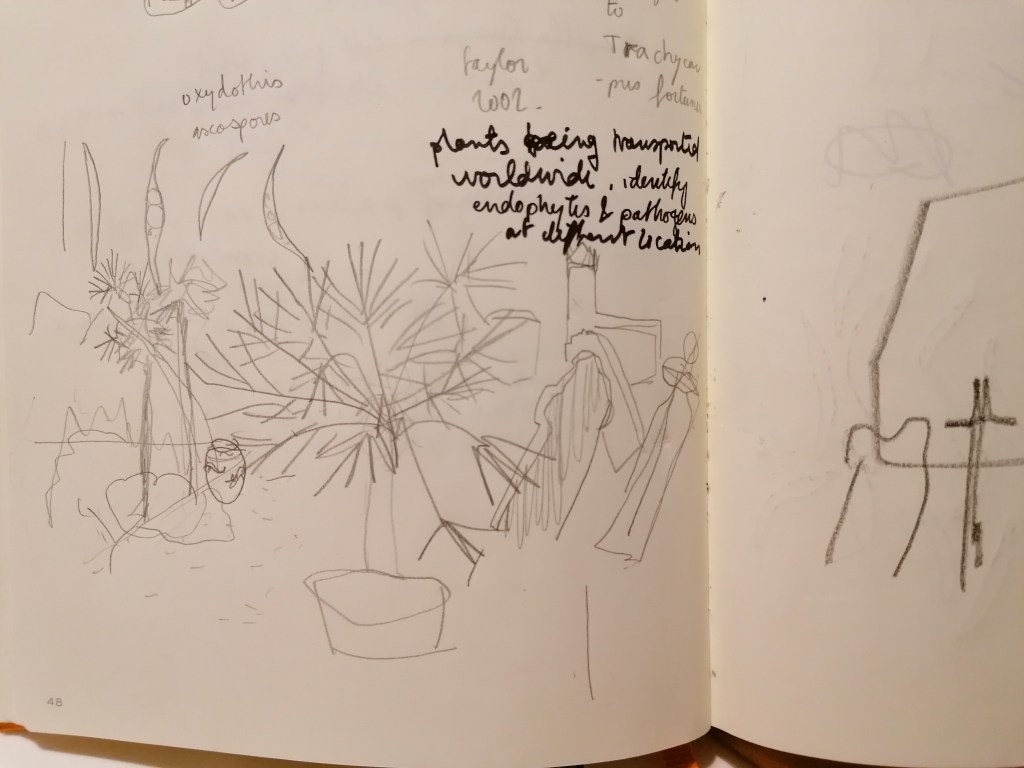 to
Trachycar
-pus fortunei
Taylor
2002.
oxydothis
ascospores
plants being transported
worldwide, identify
endophytes & pathogens
at different location
48